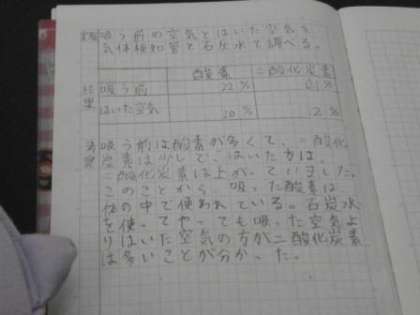 実験 吸う前の空気とはいた空気を
気体検知管と石灰水で調べる。
酸素 二酸化炭素
結果 吸う前 22%
はいた空気 20% 2%
考察 吸う前は酸素が多くて、二酸化
炭素は少しで、はいた方は、
二酸化炭素は上がっていました。
このことから 吸った酸素は
体の中で使われている。石灰水
を使ってやっても吸った空気よ
りはいた空気の方が二酸化炭素
は多いことが分かった。